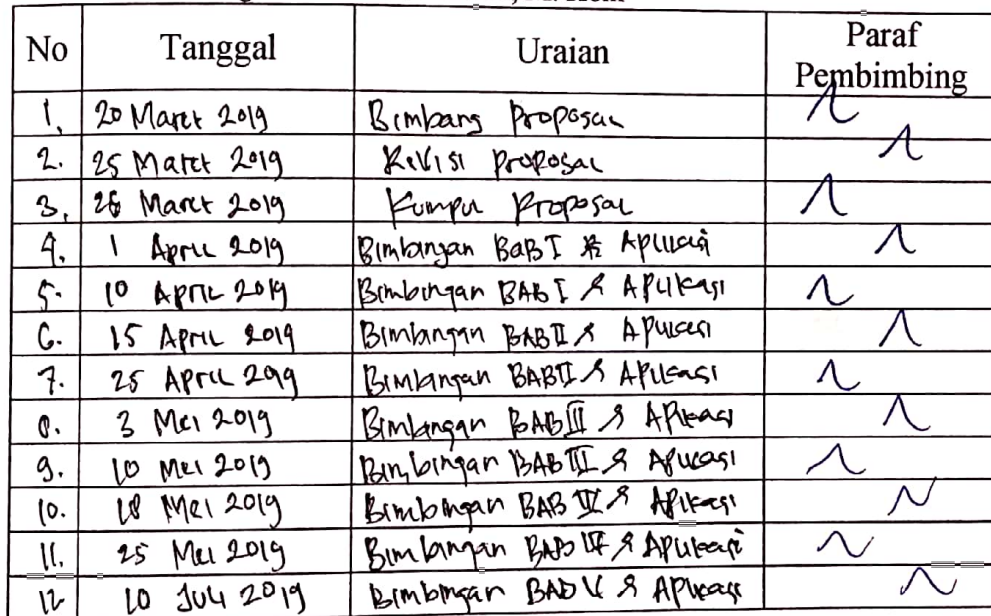 No Tanggal Uraian Paraf Pembimbing
1. 20 Maret 2019 Bimbang Proposal
2. 25 Maret 2019 Revisi Proposal
3. 26 Maret 2019 Kumpul Proposal
4. 1 April 2019 Bimbingan BaB I & Aplikasi
5. 10 April 2019 Bimbingan BAB I & Aplikasi
6. 15 April 2019 Bimbingan BAB II & Aplikasi
7. 25 April 2019 Bimbingan BAB II & Aplikasi
8. 3 Mei 2019 Bimbingan BAB III & Aplikasi
9. 10 Mei 2019 Bimbingan BAB III & Aplikasi
10. 18 Mei 2019 Bimbingan BAB & Aplikasi
11. 25 Mei 2019 Bimbingan BAB & Aplikasi
12 10 Juli 2019 Bimbingan BAB V & Aplikasi